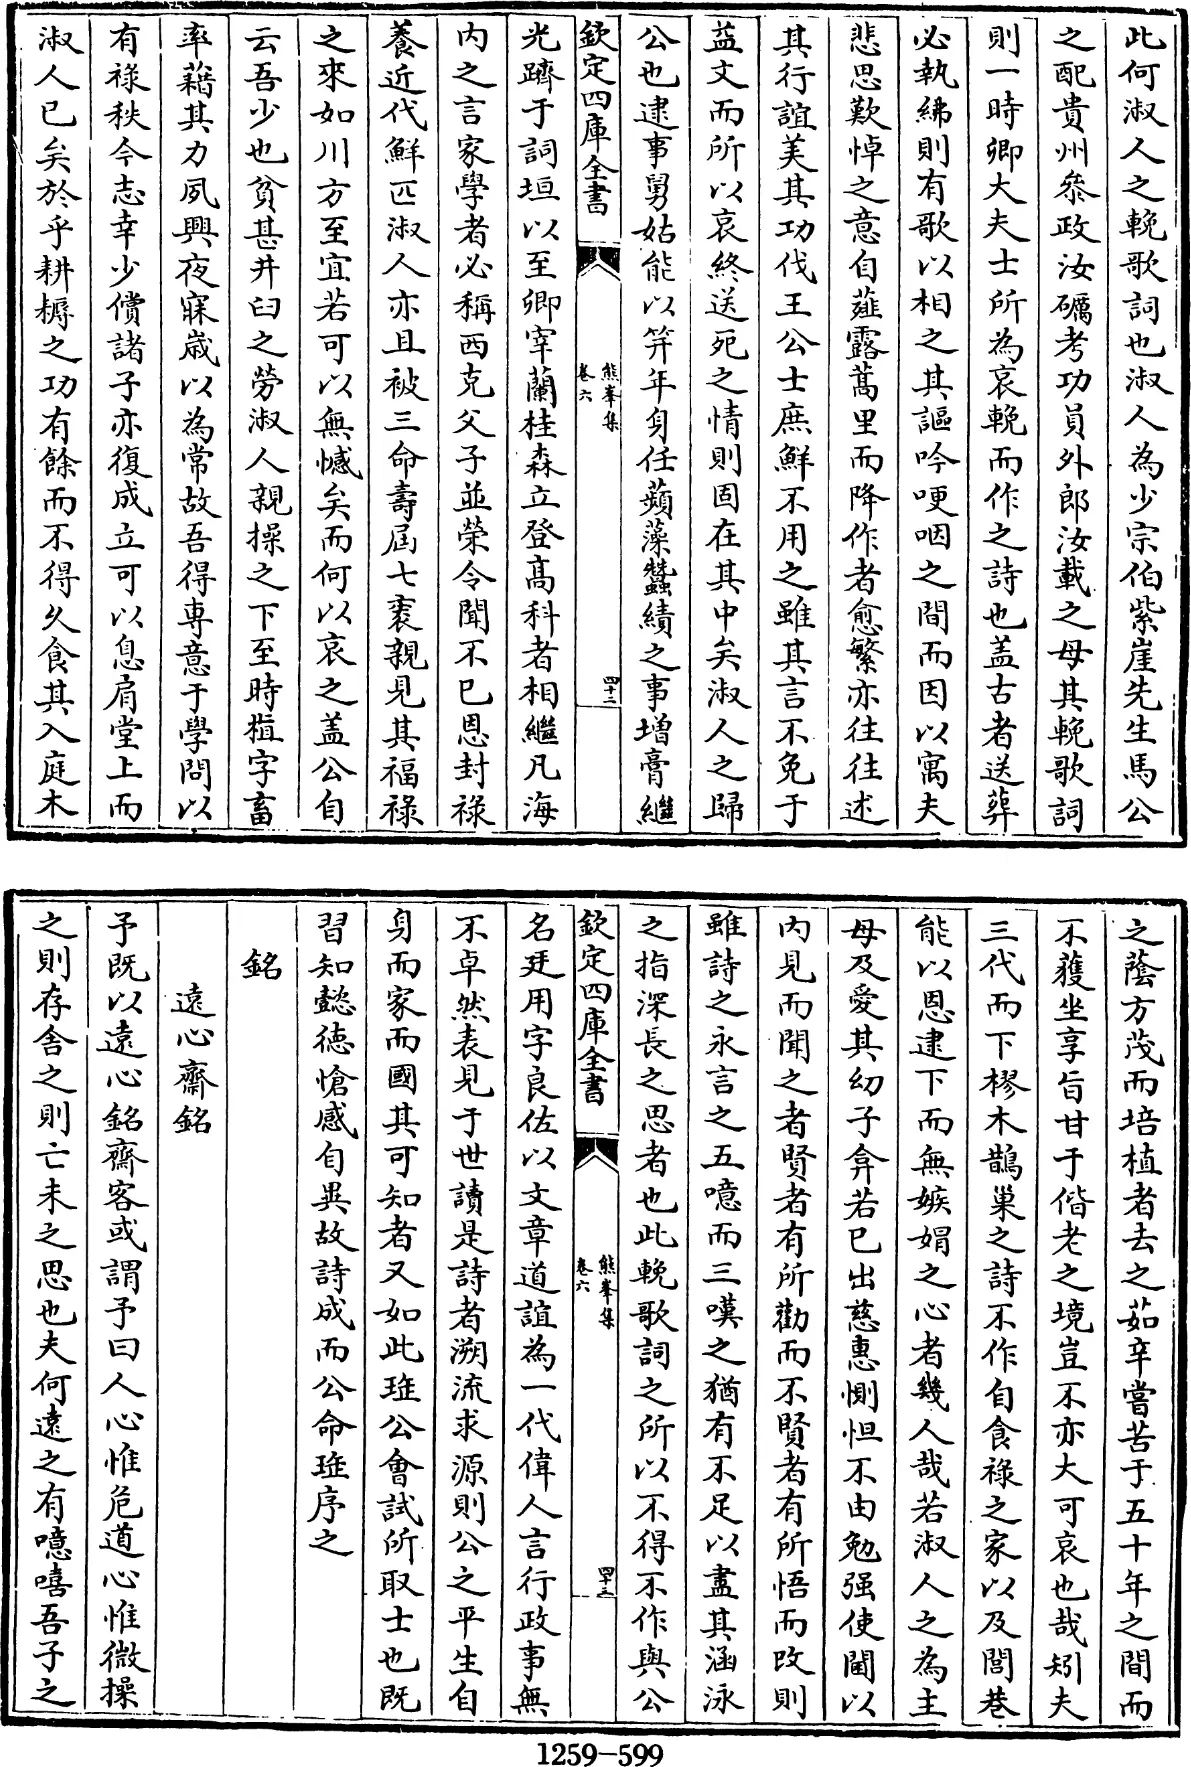 此何淑人之輓歌詞也淑人為少宗伯紫崖先生馬公
之配貴州叅政汝礪考功員外郎汝載之母其輓歌詞
則一時卿大夫士所為哀輓而作之詩也盖古者送葬
必執紼則有歌以相之其謳吟哽咽之間而因以寓夫
悲思歎悼之意自薤露蒿里而降作者愈繁亦往往述
其行誼美其功伐王公士庶鮮不用之雖其言不免于
益文而所以哀終送死之情則固在其中矣淑人之歸
公也逮事舅姑能以笄年身任蘋藻蠶績之事增膏繼
欽定四庫全書
熊峯集
卷六
四十二
光躋于詞垣以至卿宰蘭桂森立登髙科者相繼凡海
内之言家學者必稱西克父子並榮令聞不已恩封禄
養近代鮮匹淑人亦且被三命壽屆七袠親見其福禄
之來如川方至宜若可以無憾矣而何以哀之盖公自
云吾少也貧甚井臼之勞淑人親操之下至時植字畜
率藉其力夙興夜寐嵗以為常故吾得専意于學問以
有祿秩今志幸少償諸子亦復成立可以息肩堂上而
淑人已矣於乎耕耨之功有餘而不得久食其入庭木
之蔭方茂而培植者去之茹辛嘗苦于五十年之間而
不獲坐享旨甘于偕老之境豈不亦大可哀也哉矧夫
三代而下樛木鵲巢之詩不作自食祿之家以及閭巷
能以恩逮下而無嫉媢之心者幾人哉若淑人之為主
母及愛其幼子弇若已出慈惠惻怛不由勉强使閫以
内見而聞之者賢者有所勸而不賢者有所悟而改則
雖詩之永言之五噫而三嘆之猶有不足以盡其涵泳
之指深長之思者也此輓歌詞之所以不得不作與公
欽定四庫全書
熊峯集
卷六
四十三
名廷用字良佐以文章道誼為一代偉人言行政事無
不卓然表見于世讀是詩者溯流求源則公之平生自
身而家而國其可知者又如此珤公會試所取士也既
習知懿徳愴感自異故詩成而公命珤序之
銘
遠心齋銘
予既以遠心銘齋客或謂予曰人心惟危道心惟微操
之則存舍之則亡未之思也夫何遠之有噫嘻吾子之
1259-599